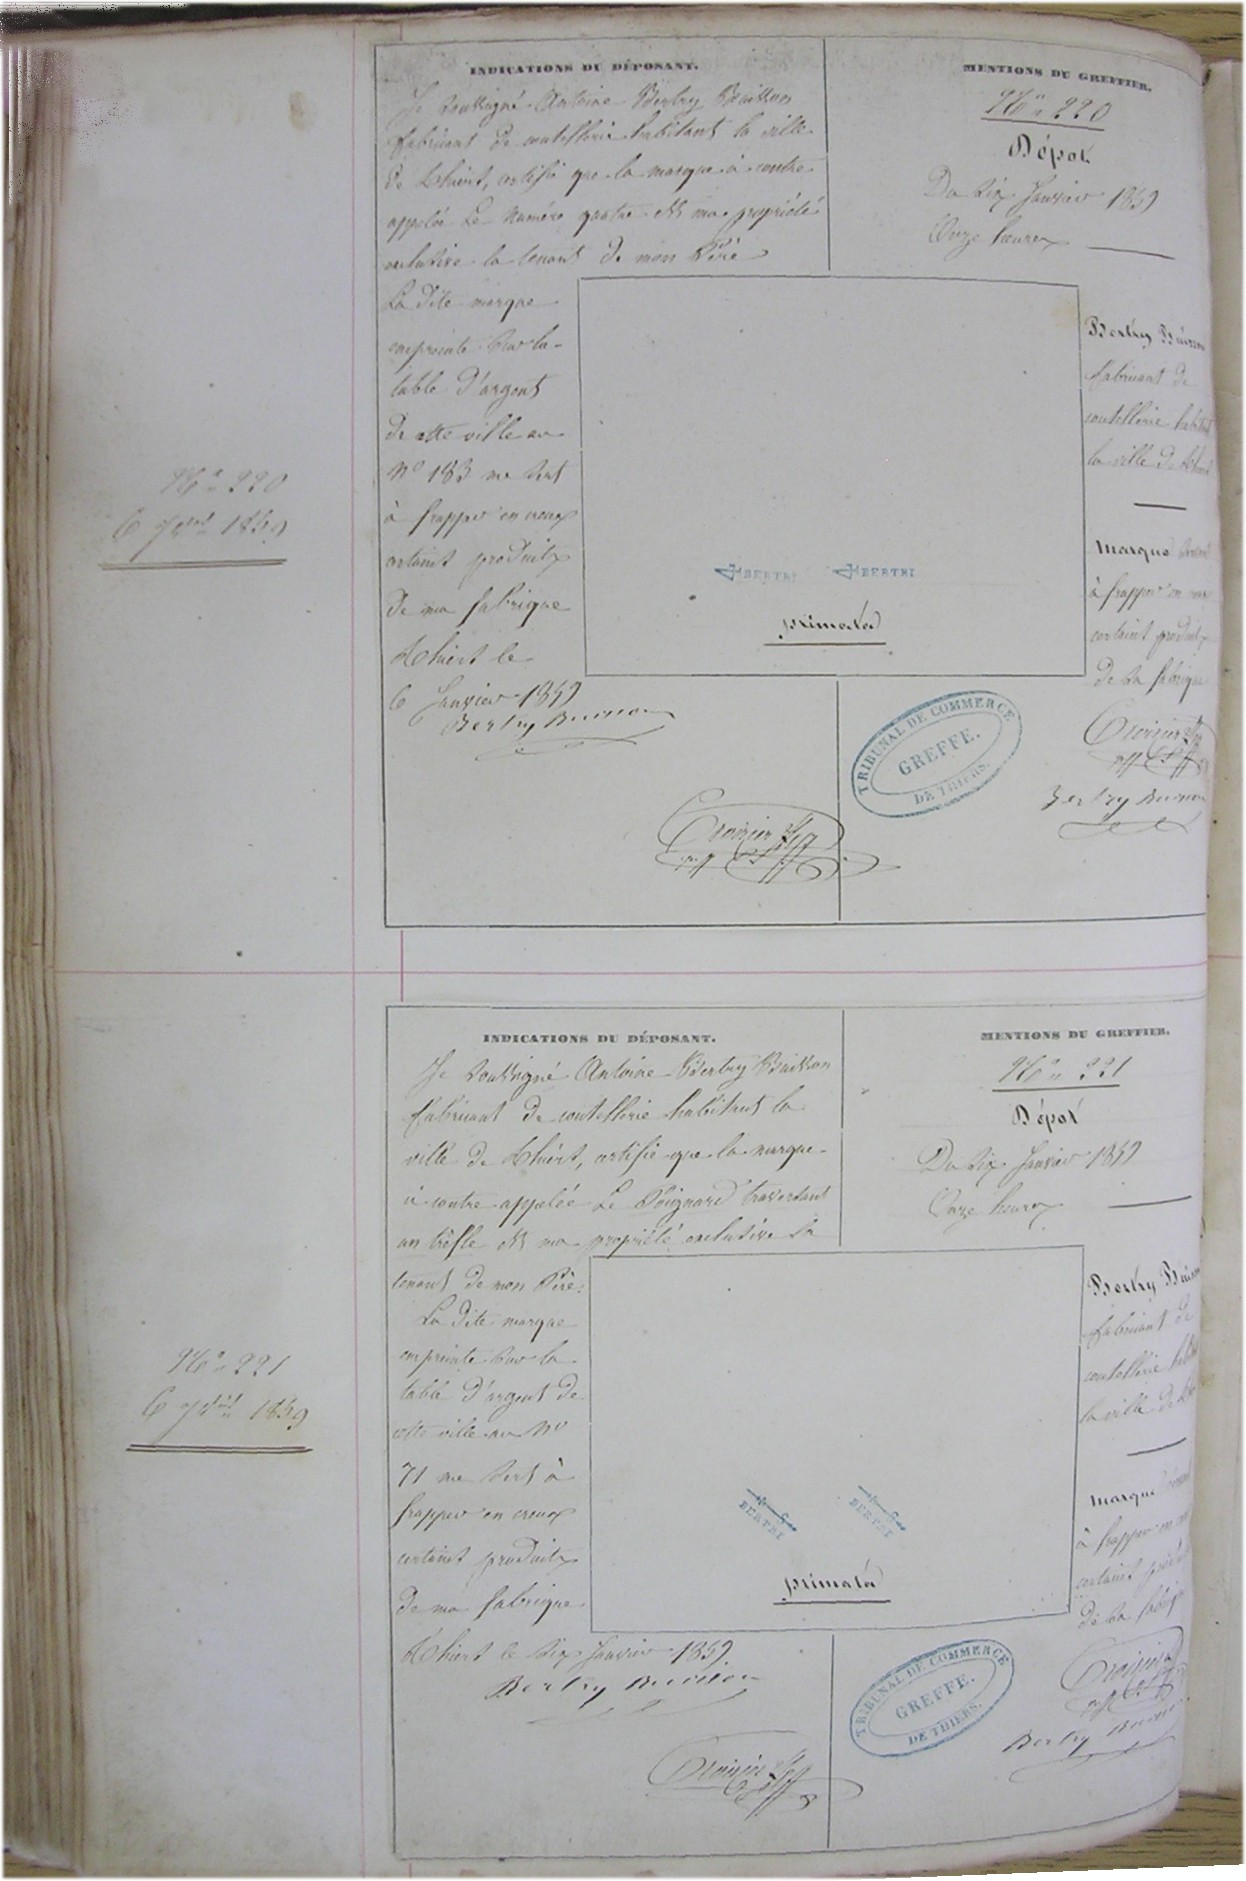 N° 220
6 Jer 1859
INDICATIONS DU DÉPOSANT.
Je soussigné Antoine Bertry Buisson
fabricant de coutellerie habitant la ville
de Thiers, certifie que la marque ci contre
appelée Le Numéro quatre est ma propriété
exclusive la tenant de mon Père
La dite marque
empreinte sur la
table d'argent
de cette ville au
N° 183 me sert
à frapper en creux
certains produits
de ma fabrique
Thiers le
6 Janvier 1859
Bertry Buisson
4 BERTRI 4 BERTRI
primata
MENTIONS DU GREFFIER.
N° 220
Dépot
Du Six Janvier 1859
Onze heures
Bertry Buisson
fabricant de
coutellerie habitant
la ville de Thiers
Marque servant
à frapper en creux
certains produits
de sa fabrique
TRIBUNAL DE COMMERCE
GREFFE.
DE THIERS.
Bertry Buisson
N° 221
6 1859
INDICATIONS DU DÉPOSANT.
Je soussigné Antoine Bertry Buisson
fabricant de coutellerie habitant la
ville de Thiers, certifie que la marque
ci contre appelée Le Poignard traversant
un trèfle est ma propriété exclusive la
tenant de mon Père.
La dite marque
empreinte sur la
table d'argent de
cette ville au N°
71 me sert à
frapper en creux
certains produits
de ma fabrique
Thiers le Six Janvier 1859
Bertry Buisson
BERTRI BERTRI
primata
MENTIONS DU GREFFIER.
N° 221
Dépot
Du Six Janvier 1859
Onze heures
Bertry Buisson
fabricant de
coutellerie
la ville de
Marque
à frapper en
certains
de sa fabrique
TRIBUNAL DE COMMERCE
GREFFE.
DE THIERS.
Bertry Buisson